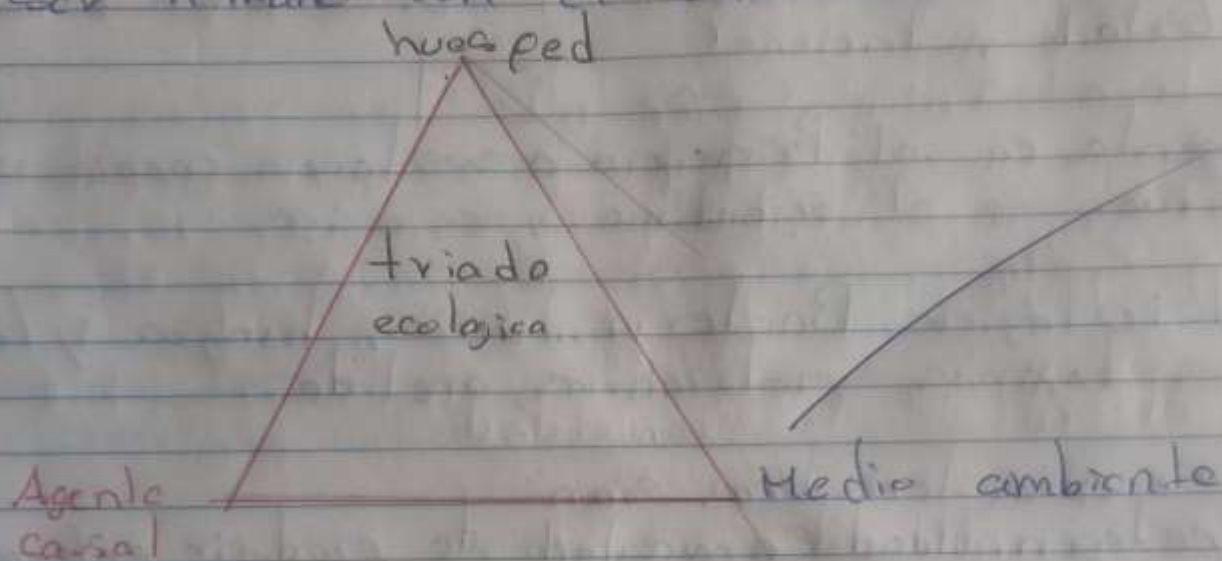 huesped
triada
ecologica
Agente
causal
Medio ambiente